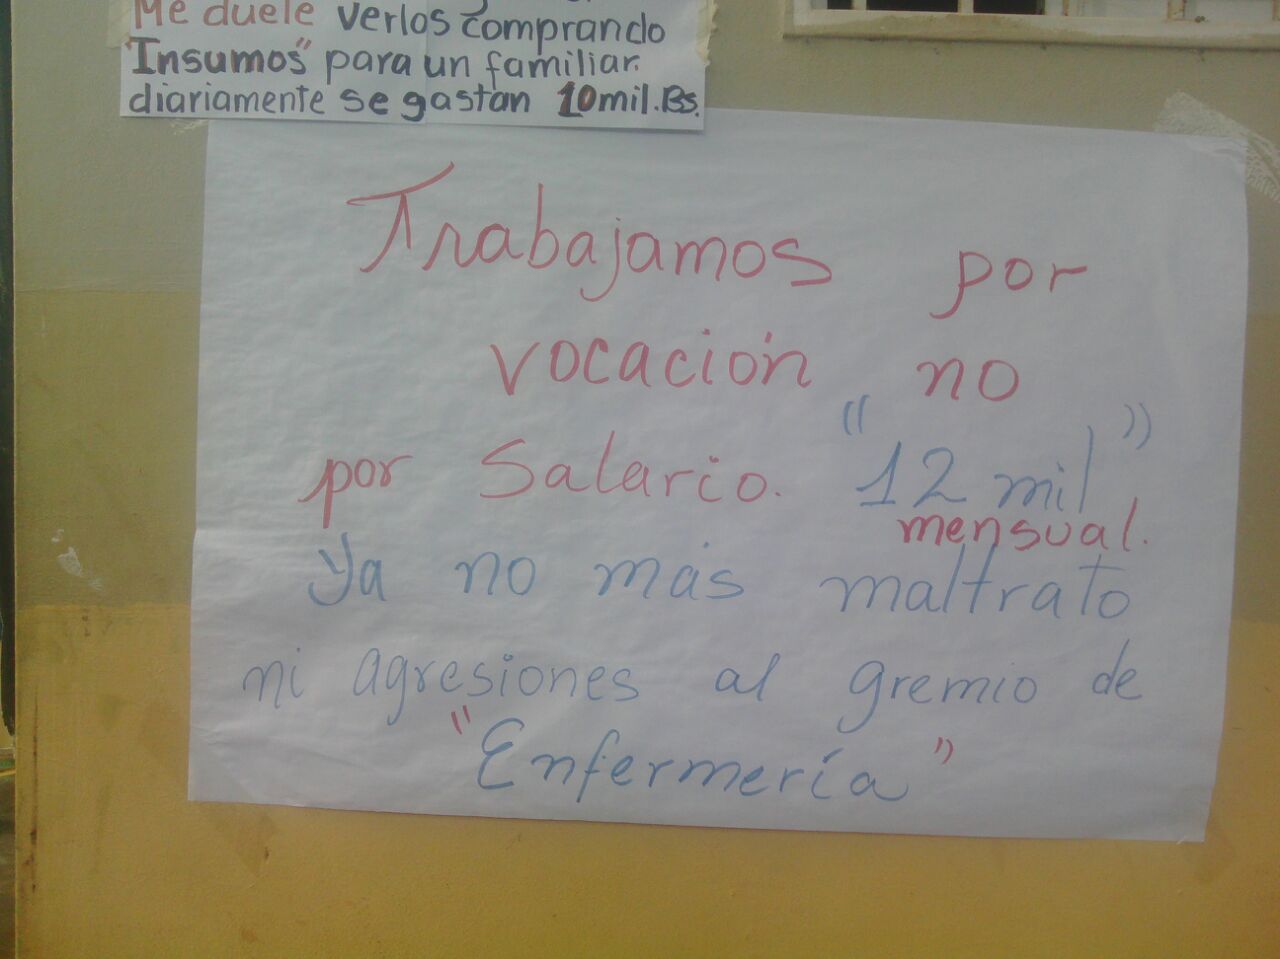 Me duele verlos comprando
"Insumos" para un familiar.
diariamente se gastan 10mil.Bs.
Trabajamos por
vocación no
por Salario. "12 mil"
mensual.
Ya no más maltrato
ni agresiones al gremio de
"Enfermería"